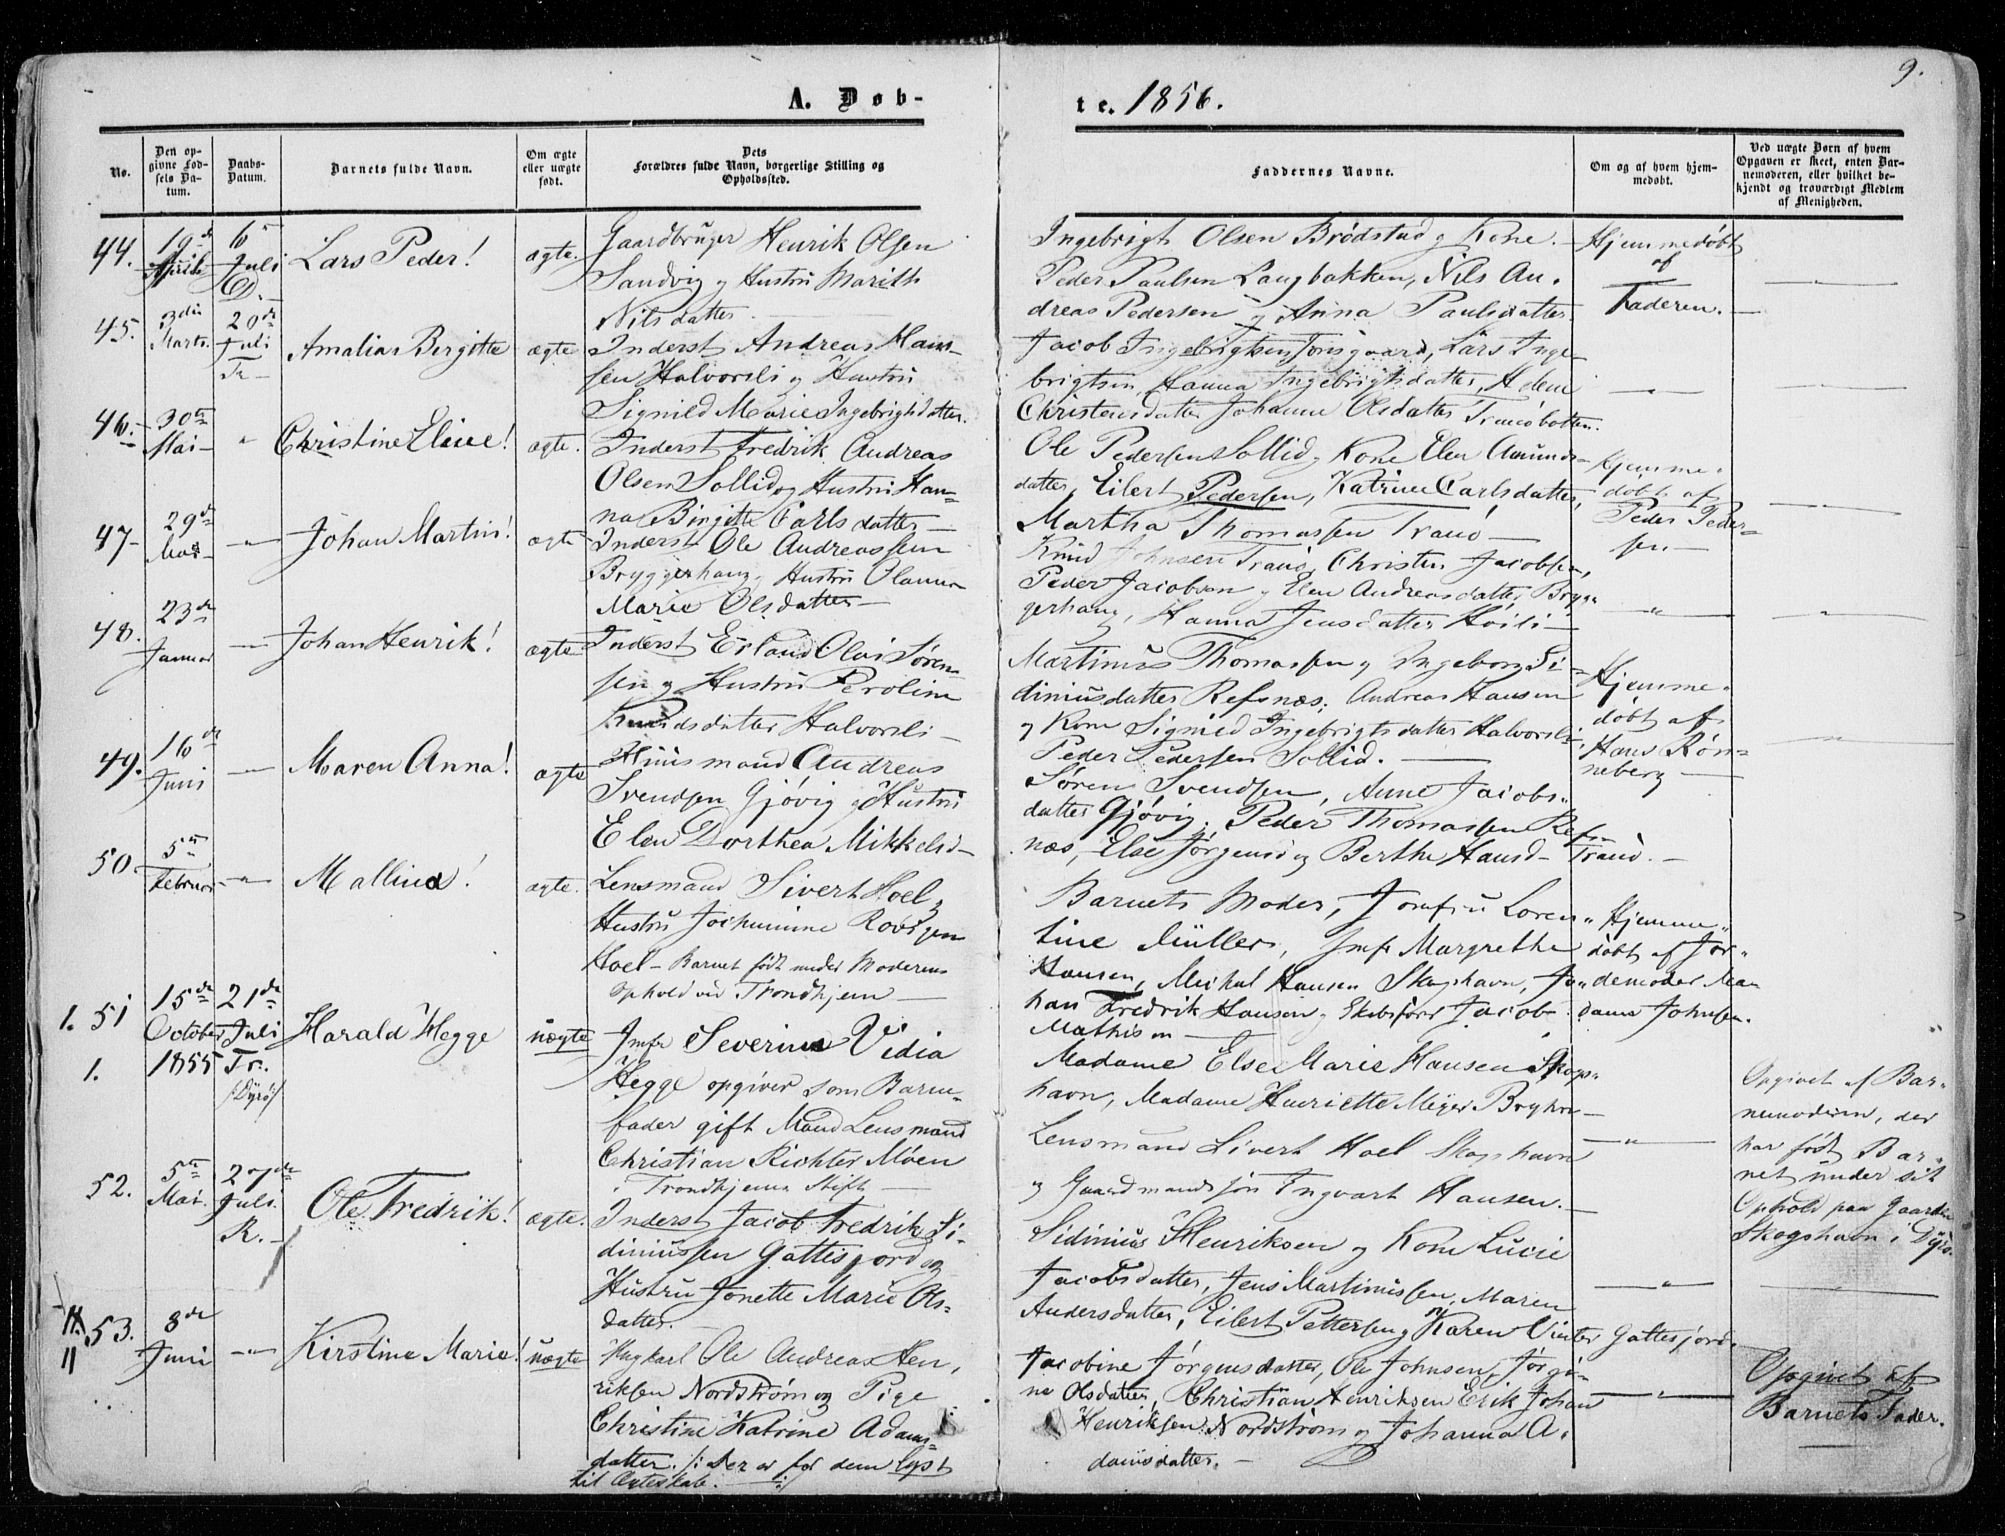 9.
A. Døb-
te. 1856.
No.
Den op-
givne Fød-
sels Da-
tum.
Daabs-
Datum.
Barnets fulde Navn.
Om ægte
eller uægte
født.
Dets
Forældres fulde Navn, borgerlige Stilling og
Opholdssted.
Faddernes Navne.
Om og af hvem hjem-
medøbt.
Ved uægte Børn af hvem
Opgaven er skeet, enten Bar-
nemoderen, eller hvilket be-
kjendt og troværdigt Medlem
af Menigheden.
44.
19de
April
6te
Juli
D.
Lars Peder!
ægte.
Gaardbruger Henrik Olsen
Sandvig og Hustru Marith
Nilsdatter.
Ingebrigt Olsen Brødstad og Kone.
Peder Paulsen Langbakken, Nils An-
dreas Pedersen og Anna Paulsdatter.
Hjemmedøbt
af
Faderen.
45.
3die
Marts.
20de
Juli
Tr.
Amalia Bergitte
ægte
Inderst Andreas Hans-
sen Halvorsli og Hustru
Signild Marie Ingebrigtsdatter.
Jacob Ingebrigtsen Tonsgaard, Lars Inge-
brigtsen, Hanna Ingebrigtsdatter, Helene
Christensdatter Johanne Olsdatter Tranøbotten.
46.
30te
Mai
"
Christine Eline!
ægte.
Inderst Fredrik Andreas
Olsen Sollid og Hustru Han-
na Birgitte Carlsdatter
Ole Pedersen Sollid, Kone Elen Amunds-
datter, Eilert Pedersen, Katrine Carlsdatter,
Martha Thomassen Tranø
Hjemme-
døbt af
Peder Peder-
sen.
47
29de
Mai
"
Johan Martin!
ægte
Inderst Ole Andreassen
Bryggerhaug, Hustru
Marie Olsdatter
Knud Johnsen Tranø, Christen Jacobsen,
Peder Jacobsen og Elen Andreasdatter Bryg-
gerhaug, Hanna Jensdatter Høili
48.
23de
Januar
Johan Henrik!
ægte
Inderst Erland Olai Søren-
sen og Hustru Peroline
Knudsdatter Halvorsli
Martinus Thomassen og Ingeborg Si-
diniusdatter Refsnæs, Andreas Hansen
og Kone Signild Ingebrigtsdatter Halvorsli,
Peder Pedersen Sollid.
Hjemme-
døbt af
Hans Røn-
neberg
49.
16de
Juni
Maren Anna!
ægte
Huusmand Andreas
Svendsen Gjøvig og Hustru
Elen Dorthea Mikkelsd
Søren Svendsen, Anne Jacobs-
datter Gjøvig, Peder Thomassen Refs-
næs, Else Jørgensd og Berthe Hansd Tranø.
50.
5te
Februar
"
Mallina!
ægte.
Lensmand Sivert Hoel og
Hustru Jochumine
Hoel - Barnet født under Moderens
Ophold ved Trondhjem
Barnets Moder, Jomfru Loren-
tine Müller, Jmfr Margrethe
Hansen, Mechal Hansen Skogshavn, Jo-
han Fredrik Hansen, Jacob
Mathisen
Hjemme-
døbt af Jor-
demoder Ma-
dame Johnsen.
1. 51
1.
15de
October
1855
21de
Juli
Tr.
/:Dyrø:/
Harald Hegge
uægte
Jmfr Severine Vidia
Hegge opgiver som Barne-
fader gift Mand Lensmand
Christian Richter Møen
i Trondhjems Stift
Madame Else Marie Hansen Skogs-
havn, Madame Henriette Meyer
Lensmand Sivert Hoel Skogshavn
og Gaardmandssøn Ingvart Hansen.
"
Opgivet af Bar-
nemoderen, der
har født Bar-
net under sit
Ophold paa Gaarden
Skogshavn i Dyrø.
52.
5te
Mai.
27de
Juli.
R.
Ole Fredrik!
ægte.
Inderst Jacob Fredrik Si-
diniussen Gottesjord og
Hustru Jonette Marie Ols-
datter.
Sidinius Henriksen og Kone Lucie
Jacobsdatter, Jens Martinussen, Maren
Andersdatter, Eilert Pettersen og Karen Vinter Gottesjord.
"
53.
11
8de
Juni
"
Kirstine Marie!
uægte
Ungkarl Ole Andreas Hen-
riksen Nordstrøm og Pige
Christine Katrine Adams-
datter. /: Der er for dem lyst
til Ægteskab. :/
Jacobine Jørgensdatter, Ole Johnsen, Jørgi-
ne Olsdatter, Christian Henriksen Erik Johan
Henriksen Nordstrøm og Johanna A-
damsdatter.
"
Opgivet af
Barnets Fader.